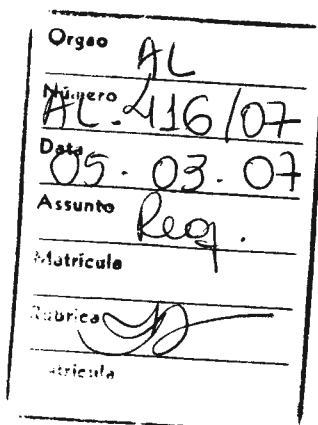 Orgao AL
Número AL-416/07
Data 05.03.07
Assunto Req.
Matrícula
Rubrica
Matrícula